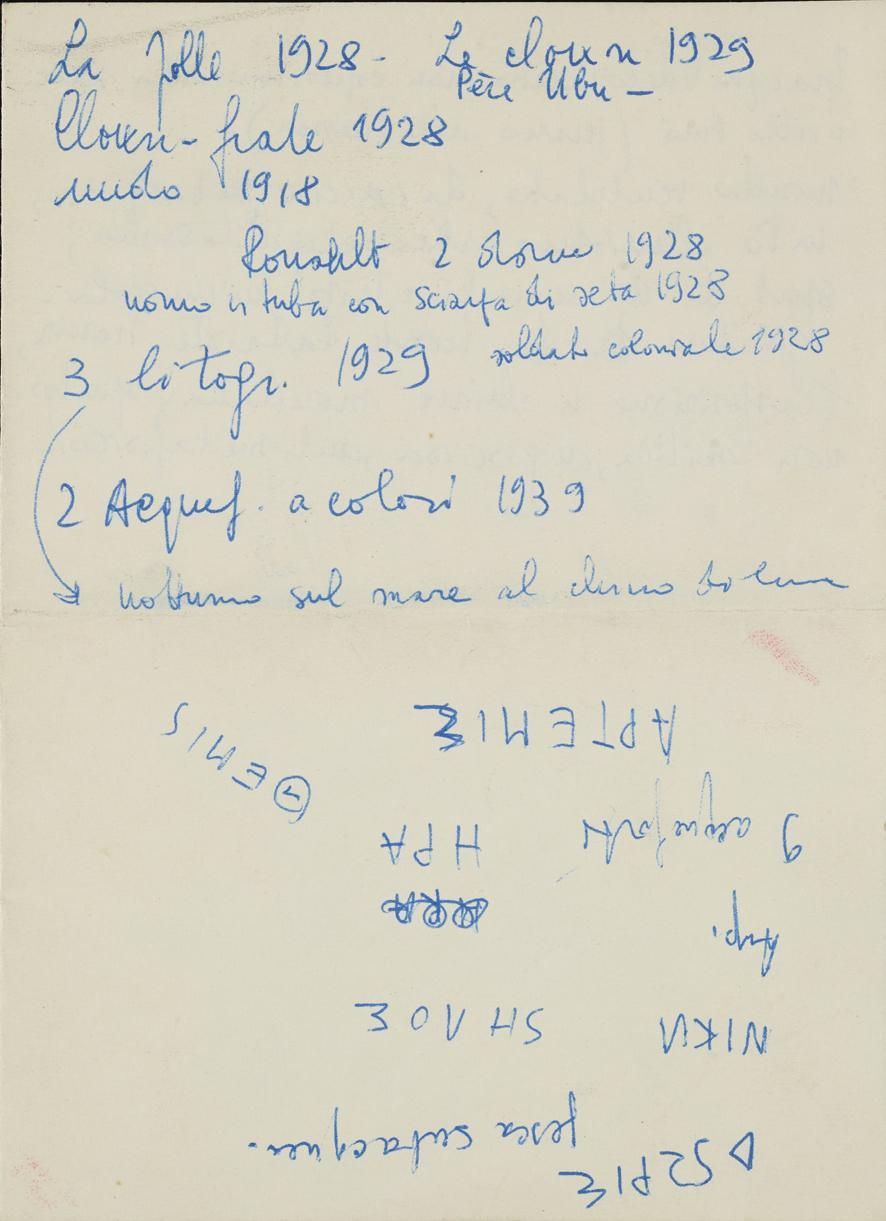 La folle 1928 - Le clown 1929
Père Ubu -
Clown-frate 1928
nudo 1918
Rouault 2 donne 1928
uomo in tuba con sciarpa di seta 1928
3 litogr. 1929 soldato coloniale 1928
2 Acquef. a colori 1939
notturno sul mare al chiaro di luna
ΔΩΡΙΣ pesca subacquea.
ΗΡΑ
6 acqueforti
ΑΡΤΕΜΙΣ
ΘΕΜΙS